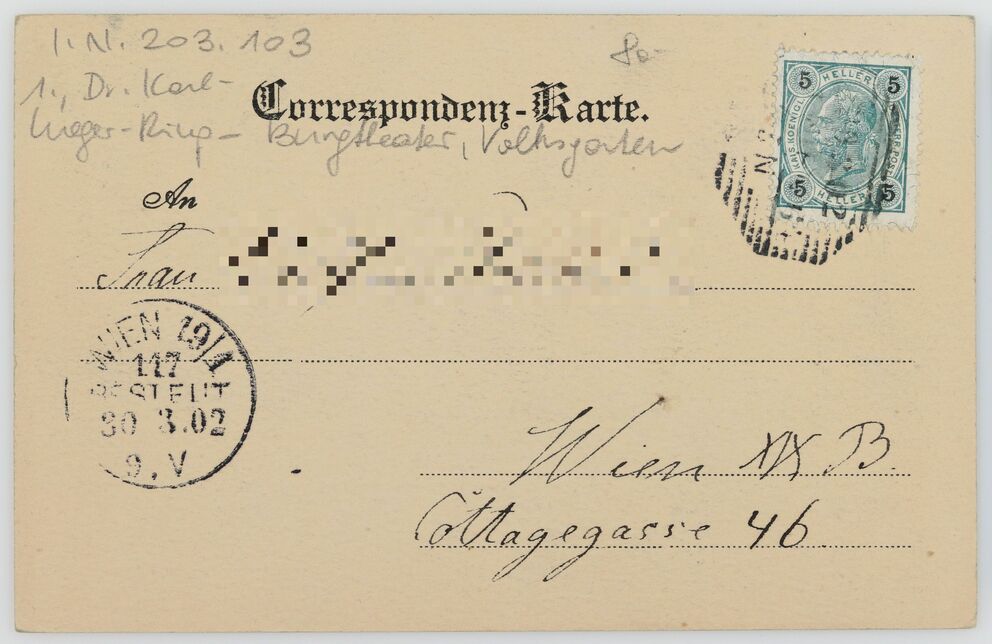 I.N. 203.103
1., Dr. Karl-
Lueger-Ring - Burgtheater, Volksgarten
80-
Correspondenz-Karte.
5 HELLER 5
KAIS. KOENIGL.
5 HELLER 5
An
Frau
WIEN 19/1
117
BESTELLT
30 3.02
9. V
Wien XIX B.
Cottagegasse 46.